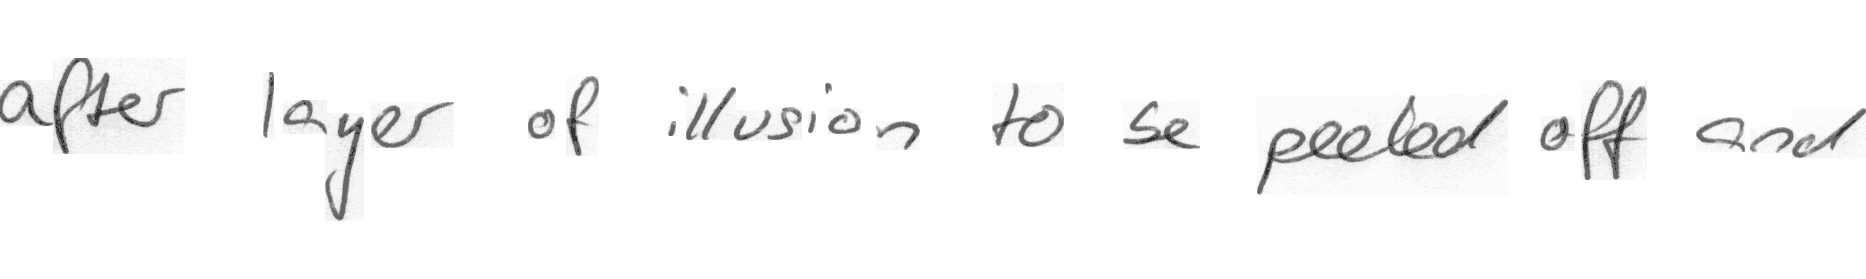 after layer of illusion to se peeled off and